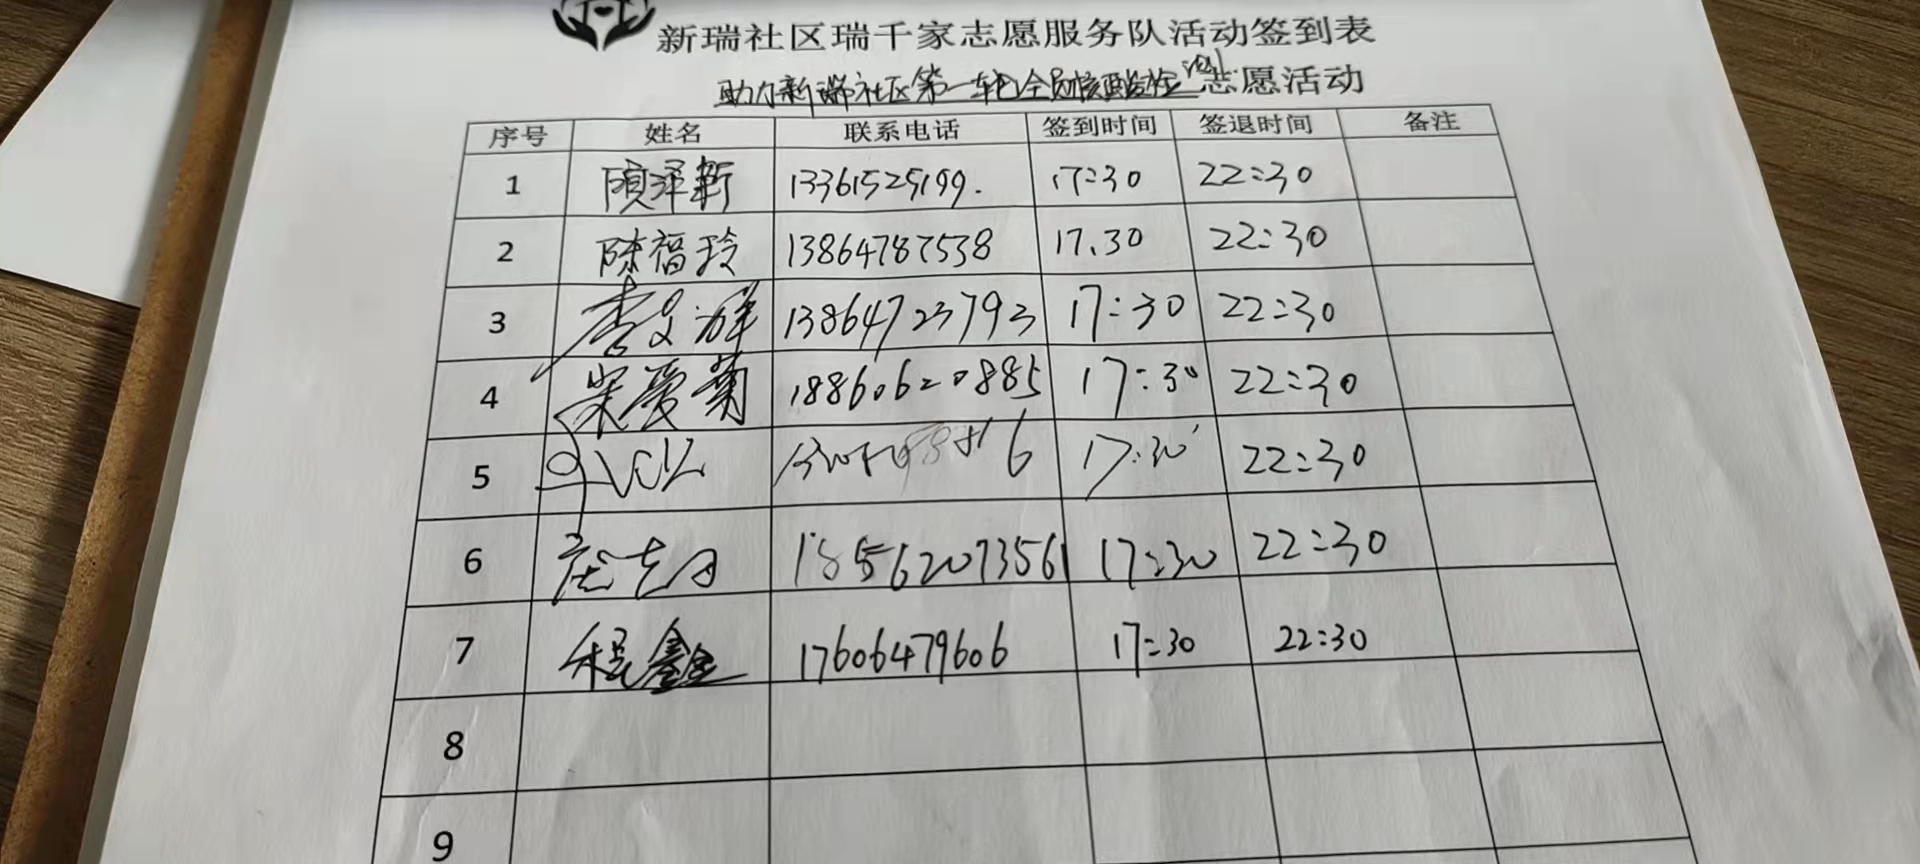 新瑞社区瑞千家志愿服务队活动签到表
助力新瑞社区第一轮全员核酸检测志愿活动
序号 姓名 联系电话 签到时间 签退时间 备注
1 顾泽新 13361525199. 17:30 22:30
2 陈福玲 13864787538 17.30 22:30
3 李文祥 13864723793 17:30 22:30
4 宋爱菊 18860620885 17:30 22:30
5 17:30 22:30
6 18556207356 17:30 22:30
7 程鑫 17606479606 17:30 22:30
8
9